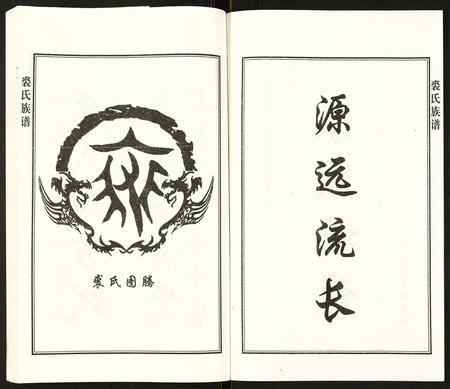 裘氏族谱
源远流长
裘氏图腾
裘氏族谱